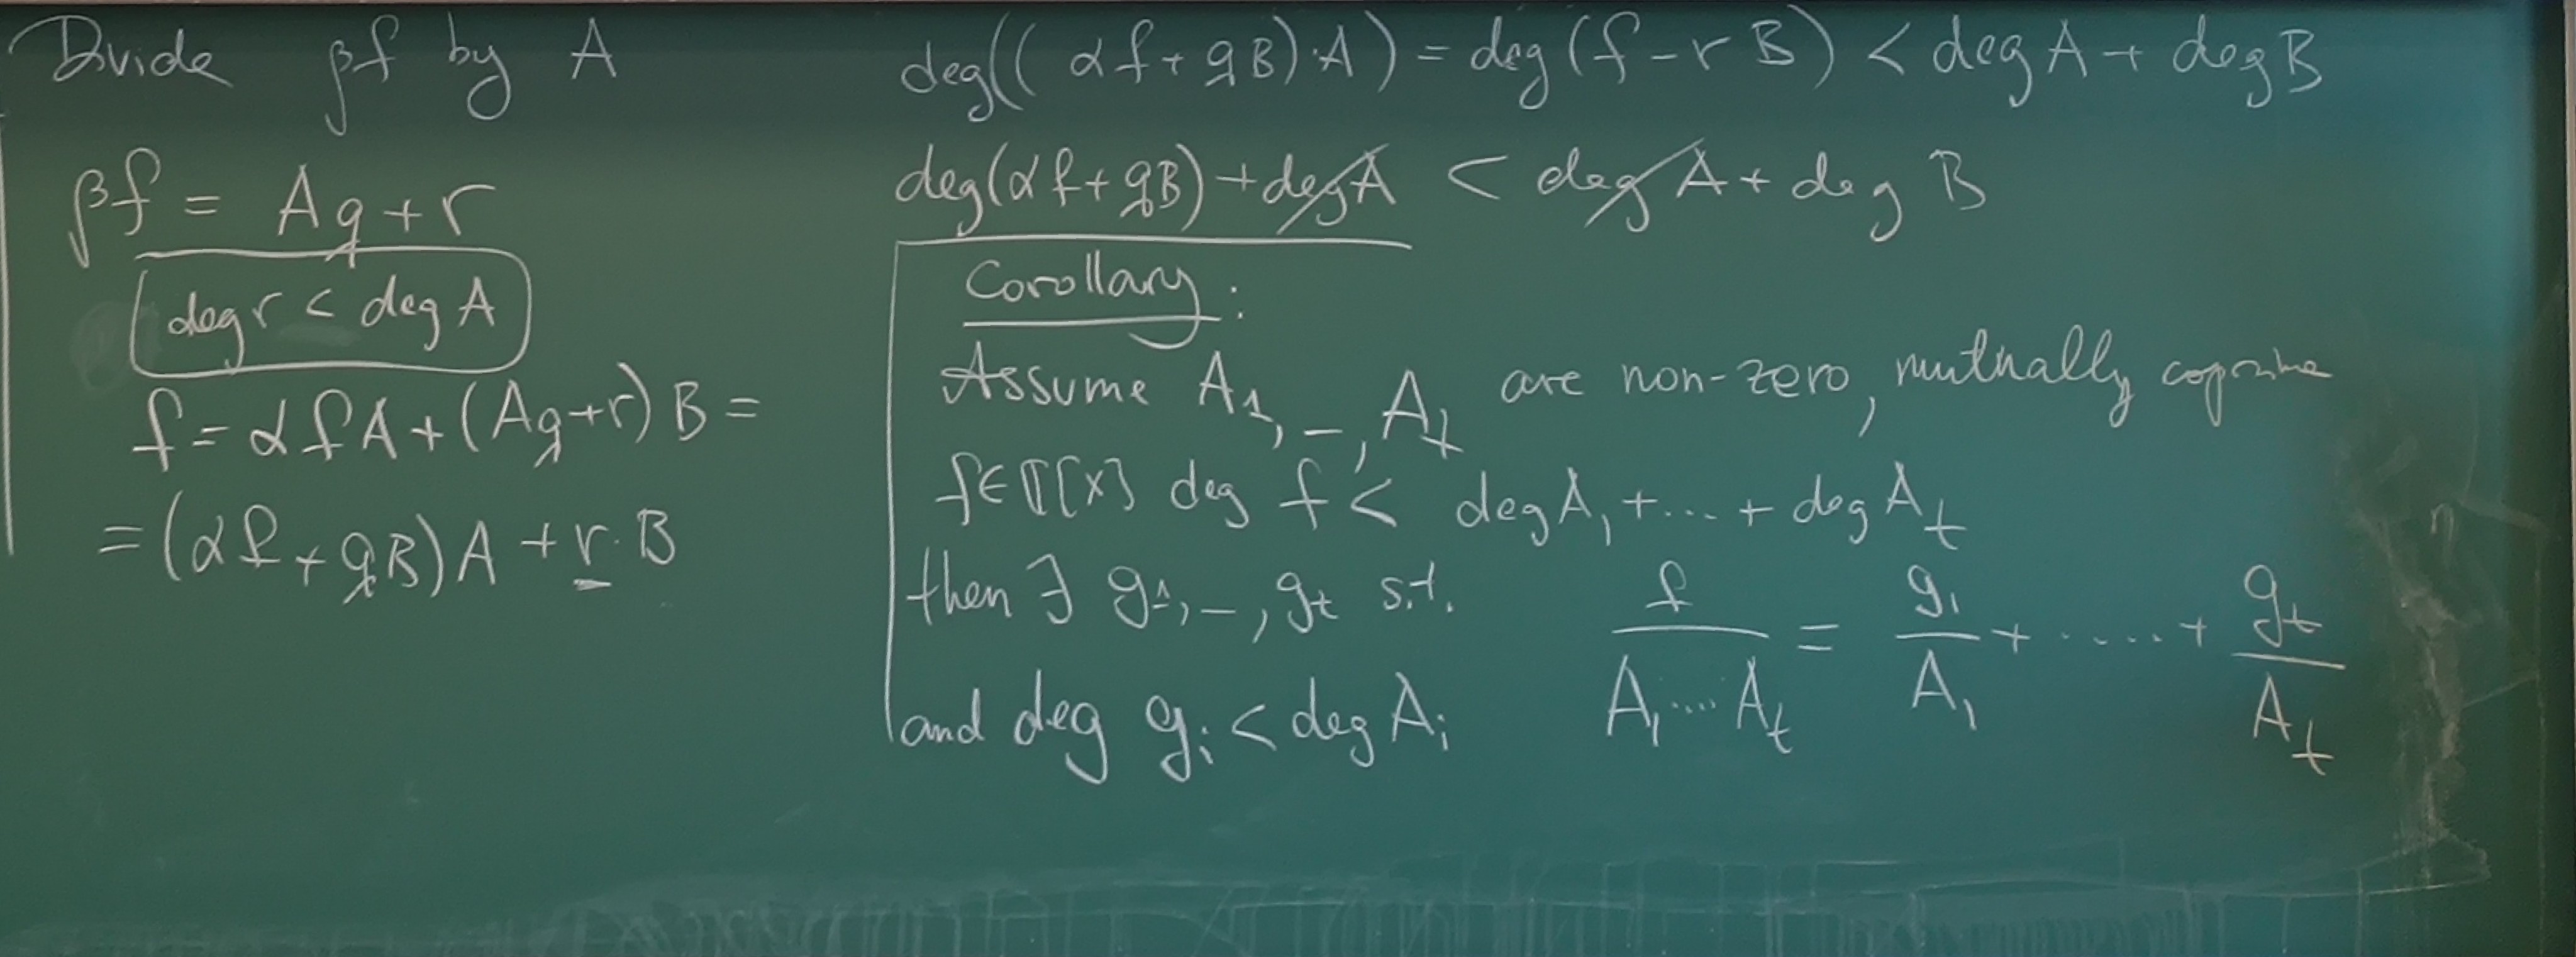 Divide βf by A
βf = Aq + r
deg r < deg A
f = αfA + (Aq+r) B =
= (αf + qB) A + r · B
deg((αf + qB)·A) = deg(f - rB) < deg A + deg B
deg(αf + qB) + deg A < deg A + deg B
Corollary:
Assume A₁, –, Aₜ are non-zero, mutually coprime
f ∈ F[x] deg f < deg A₁ + ... + deg Aₜ
then ∃ g₁, –, gₜ s.t. f / (A₁ .... Aₜ) = g₁ / A₁ + ..... + gₜ / Aₜ
and deg gᵢ < deg Aᵢ